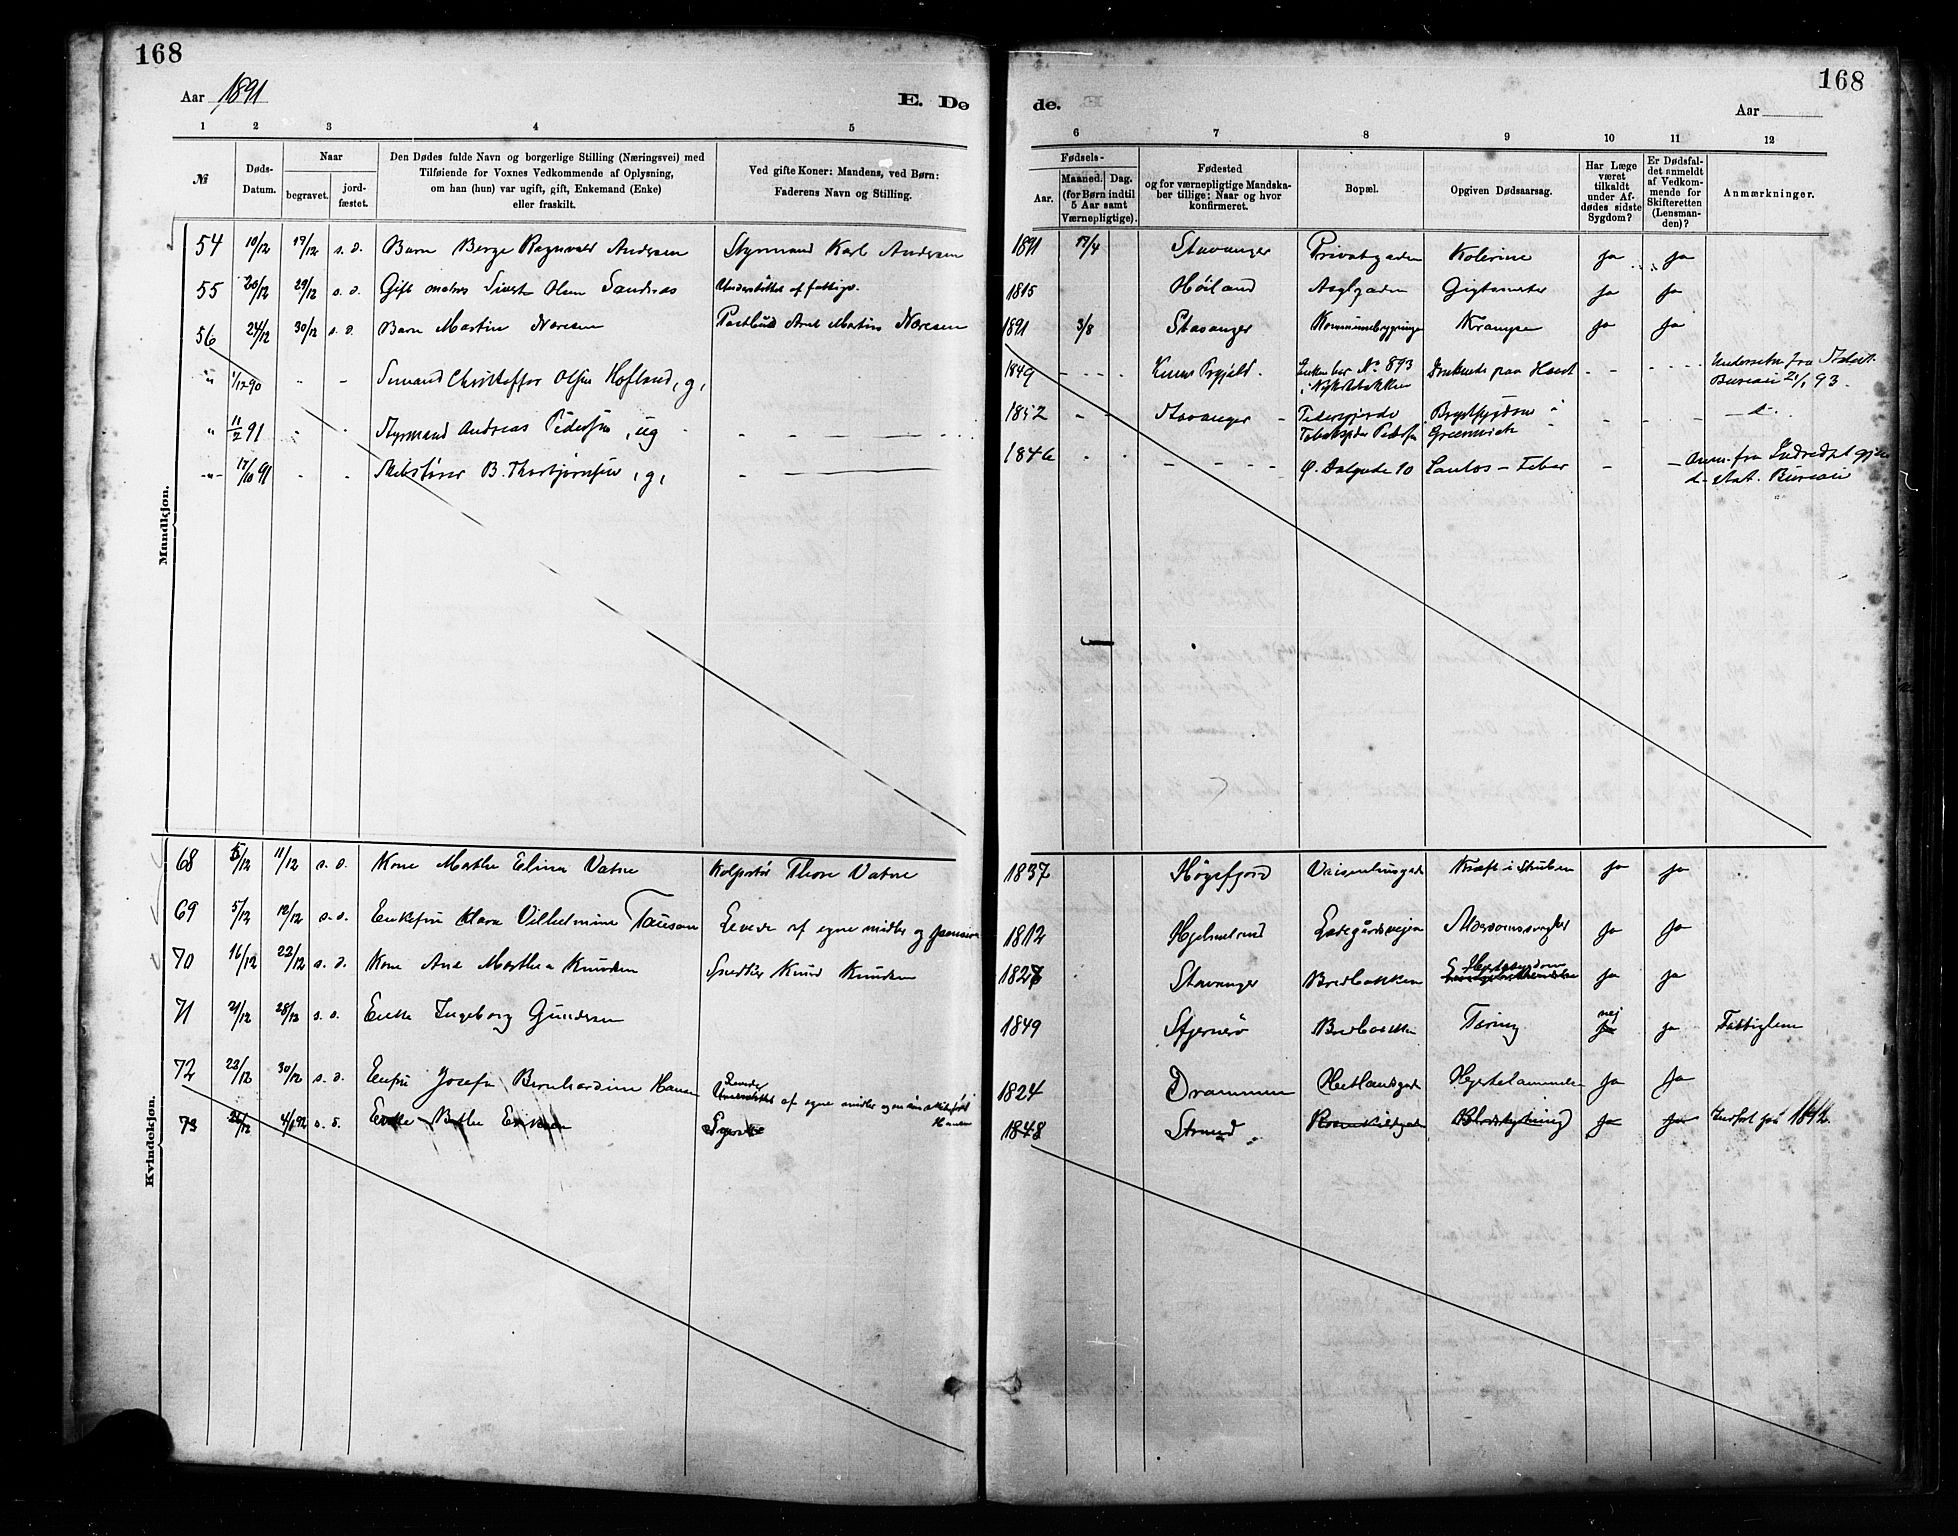 168
168
Aar 1891
E. Dø
de.
Aar
1 2 3 4 5
6 7 8 9 10 11 12
№
Døds-Datum.
Naar
begravet.
jordfæstet.
Den Dødes fulde Navn og borgerlige Stilling (Næringsvei) med
Tilføiende for Voxnes Vedkommende af Oplysning,
om han (hun) var ugift, gift, Enkemand (Enke)
eller fraskilt.
Ved gifte Koner: Mandens, ved Børn:
Faderens Navn og Stilling.
Fødsels-
Aar.
Maaned. Dag.
(for Børn indtil
5 Aar samt
Værnepligtige).
Fødested
og for værnepligtige Mandska-
ber tillige: Naar og hvor
konfirmeret.
Bopæl.
Opgiven Dødsaarsag.
Har Læge
været
tilkaldt
under Af-
dødes sidste
Sygdom?
Er Dødsfal-
det anmeldt
af Vedkom-
mende for
Skifteretten
(Lensman-
den)?
Anmærkninger.
Mandkjøn.
54 10/12 17/12 s. d. Barn Berge Ragnvald Andersen Styrmand Karl Andersen 1891 17/4 Stavanger Privatgaden Kolerine ja ja
55 20/12 29/12 s. d. Gift Sivert Olsen Sandnæs Understøttet af fattigv. 1815 Høiland Asylgaden ja ja
56 24/12 30/12 s. d. Barn Martin Naresen Postbud Martin Naresen 1891 3/8 Stavanger Krampe ja ja
" 1/12 90 - - Sømand Christoffer Olsen Hofland, g, 1849 Enken bor No 893 Druknede paa Havet - - fra Statist.
i Nykirkebakken
Bureau 21/1 93.
" 11/2 91 - - Styrmand Andreas Pedersen, ug 1852 - - Stavanger - Pedersgjerde Brystsygdom i
Greenwich
- d -.
" 17/10 91 - - Skibsfører B. Thorbjørnsen, g, 1846 Ø. Dalgade 10 Santos - Feber - - Anm. fra Indredept gjen.
d. stat. Bureau
Kvindekjøn.
68 5/12 11/12 s. d. Kone Marthe Elina Vatne Kolportør Thore Vatne 1837 Høgsfjord Vaisenhusgade Kræft i Struben ja ja
69 5/12 10/12 s. d. Enkefru Klara Vilhelmine Tausan Levede af egne midler og pension 1812 Hjelmeland Ladegårdsveien ja ja
70 16/12 22/12 s. d. Kone Ane Marthea Knudsen Snedker Knud Knudsen 1827 Stavanger Bredbakken Hjertesygdom ja ja
71 21/12 28/12 s. d. Enke Ingeborg Gundersen 1849 Sjernerø Bredbakken Tæring nej ja Fattiglem
72 23/12 30/12 s. d. Enkefru Josefa Bernhardine Hansen Levede af egne midler Hansen 1824 Drammen Hetlandsgade Hjertelammelse ja ja
73 26/12 4/1 92 s. d. Enke 1848 Strand Blodstyrtning ja ja Indført på 1892.